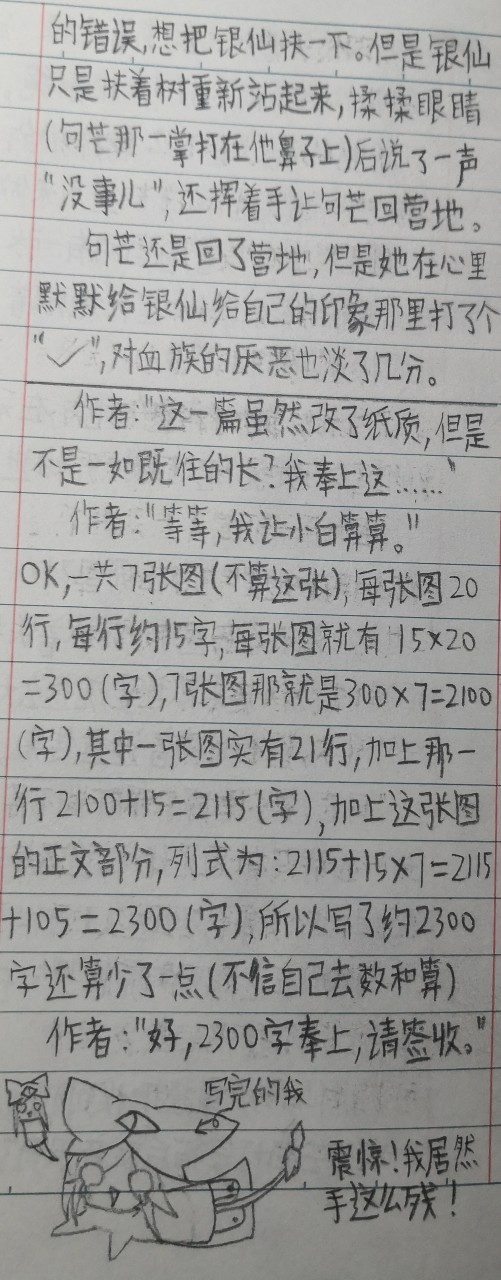 的错误,想把银仙扶一下。但是银仙
只是扶着树重新站起来,揉揉眼睛
(句芒那一掌打在他鼻子上)后说了一声
"没事儿",还挥着手让句芒回营地。
句芒还是回了营地,但是她在心里
默默给银仙给自己的印象那里打了个
"✓",对血族的厌恶也淡了几分。
作者:"这一篇虽然改了纸质,但是
不是一如既往的长?我奉上这……"
作者:"等等,我让小白算算。"
OK,一共7张图(不算这张),每张图20
行,每行约15字,每张图就有15×20
=300(字),7张图那就是300×7=2100
(字),其中一张图实有21行,加上那一
行2100+15=2115(字),加上这张图
的正文部分,列式为:2115+15×7=2115
+105=2300(字),所以写了约2300
字还算少了一点(不信自己去数和算)
作者:"好,2300字奉上,请签收。"
写完的我
震惊!我居然
手这么残!